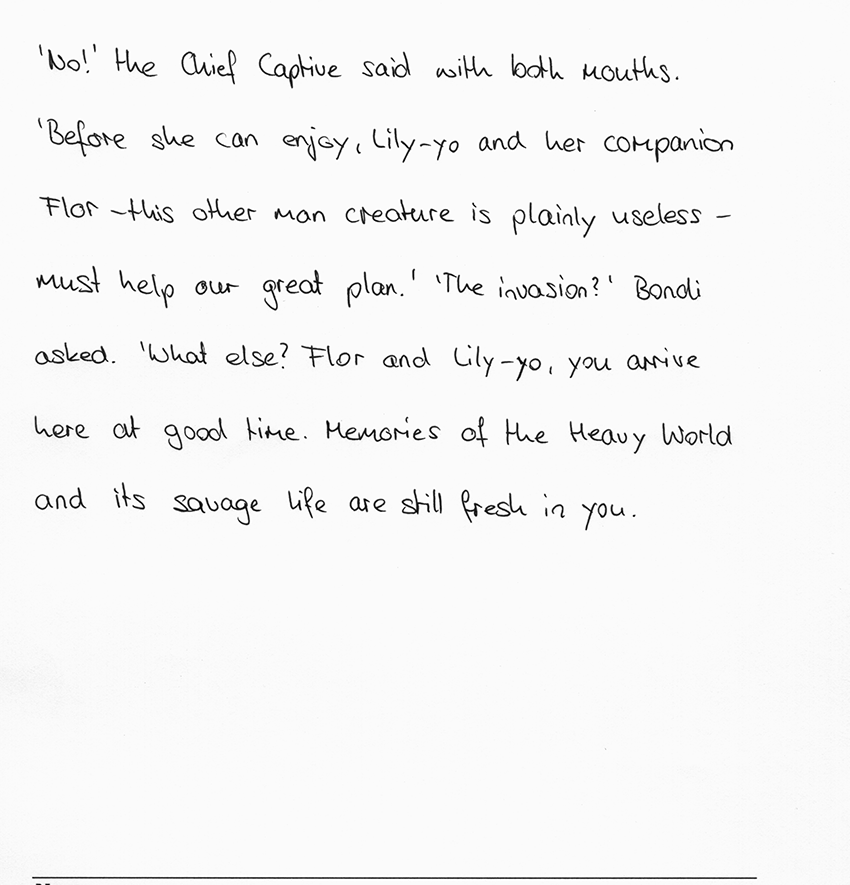 'No!' the Chief Captive said with both mouths.
'Before she can enjoy, Lily-yo and her companion
Flor – this other man creature is plainly useless –
must help our great plan.' 'The invasion?' Bondi
asked. 'What else? Flor and Lily-yo, you arrive
here at good time. Memories of the Heavy World
and its savage life are still fresh in you.